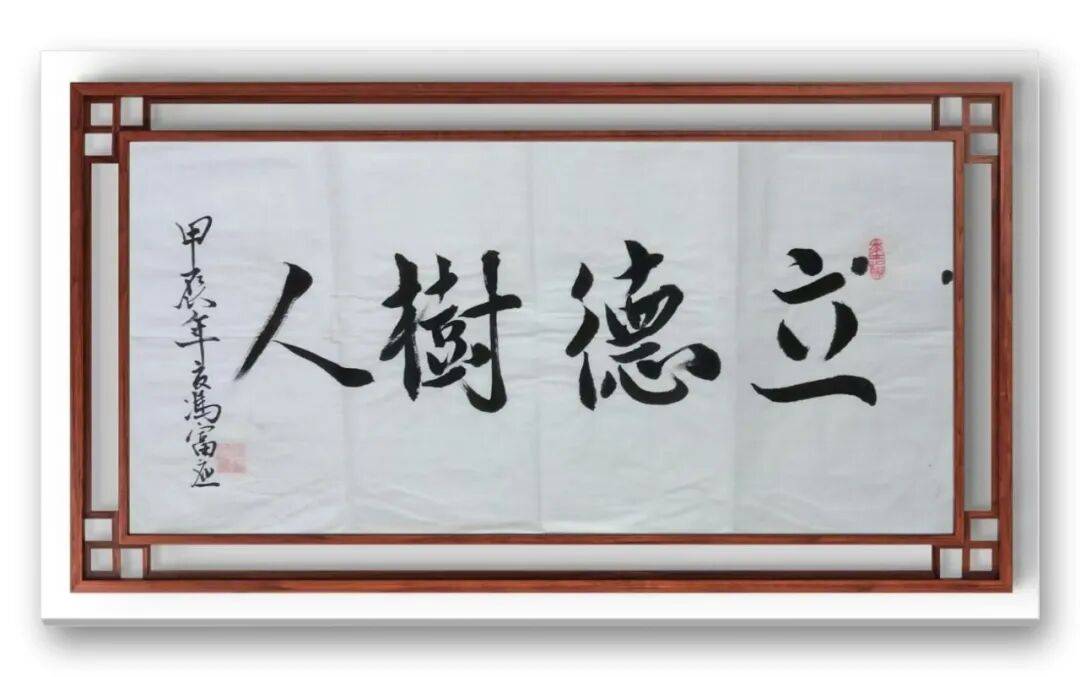 立德樹人
甲辰年夏馮富应